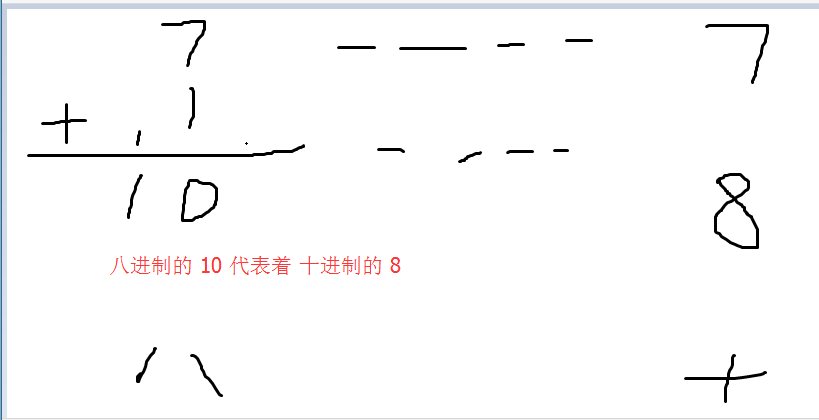 7 — — - - 7
+ , 1
- - - -
10 8
八进制的 10 代表着 十进制的 8
八 十